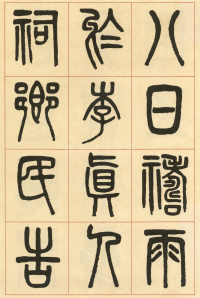 八日禱雨
於李眞人
祠鄉民告